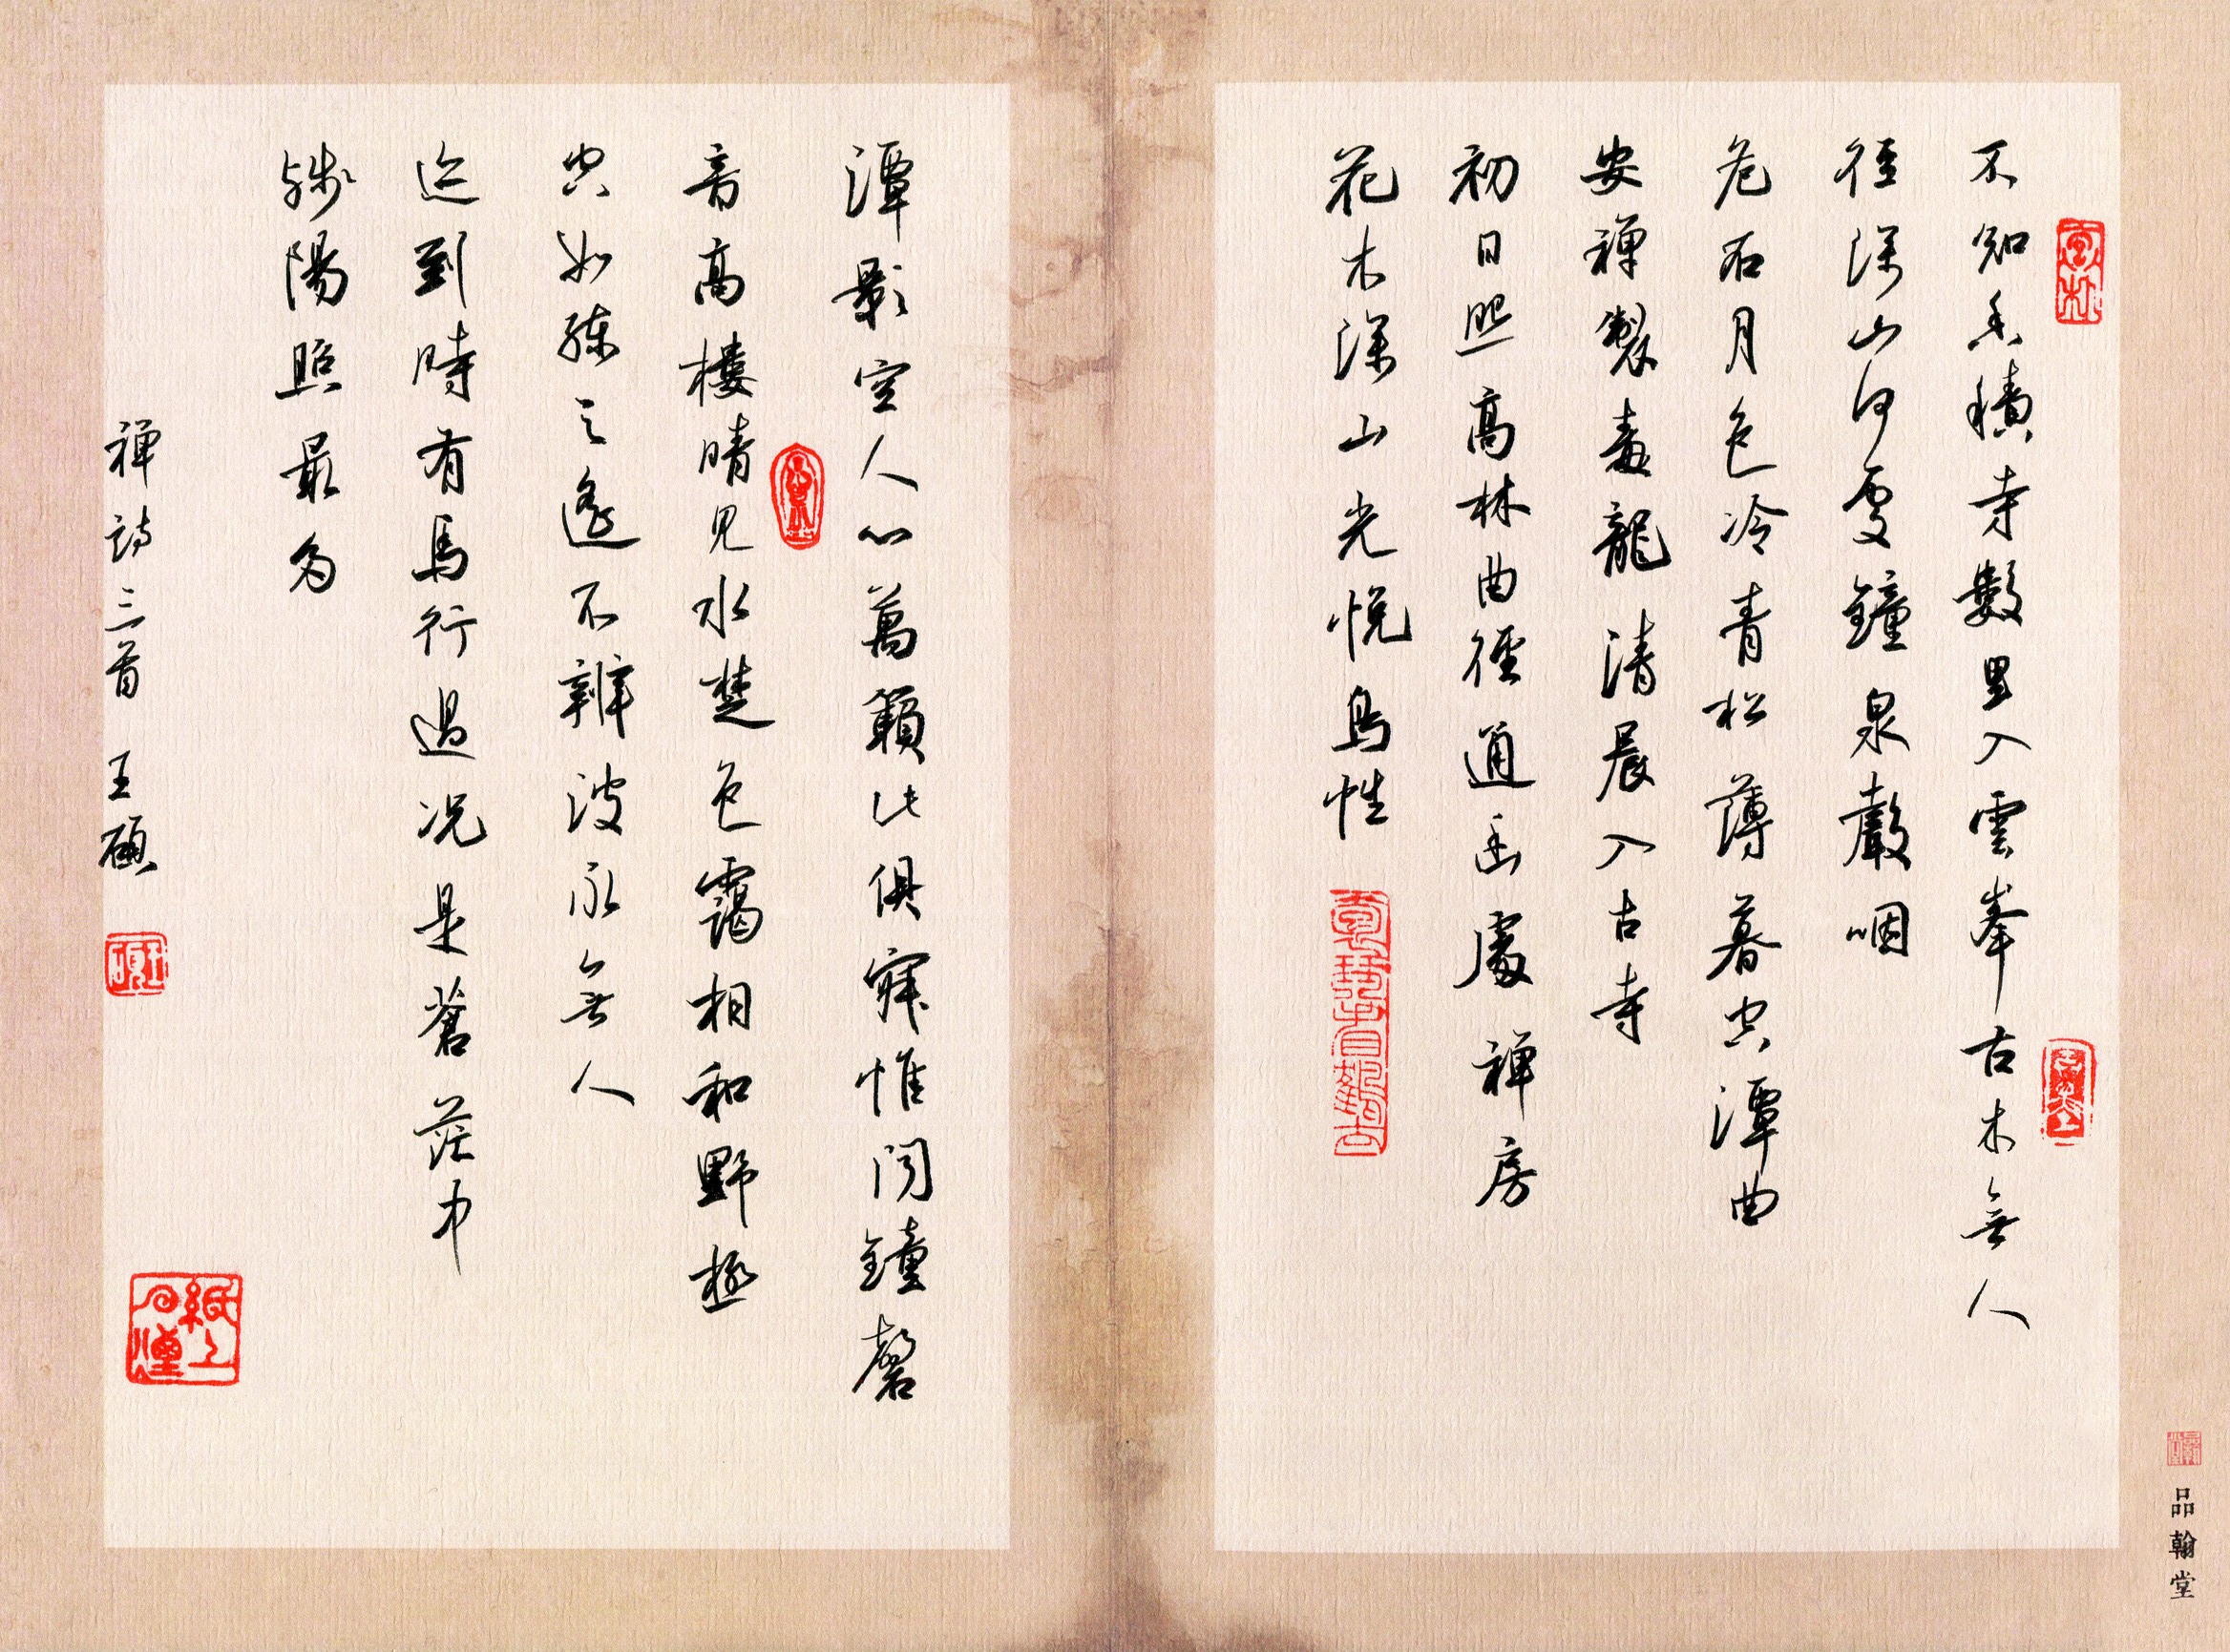 不知香積寺數里入雲峯古木無人
徑深山何處鐘泉聲咽
危石月色冷青松薄暮空潭曲
安禪製毒龍清晨入古寺
初日照高林曲徑通幽處禪房
花木深山光悅鳥性
潭影空人心萬籟此俱寂惟聞鐘磬
音高樓晴見水楚色靄相和野極
空如練天遙不辨波永無人
迹到時有馬行過況是蒼茫中
殘陽照最多
禪詩三首 王碩
王碩
紙上云煙
品翰堂